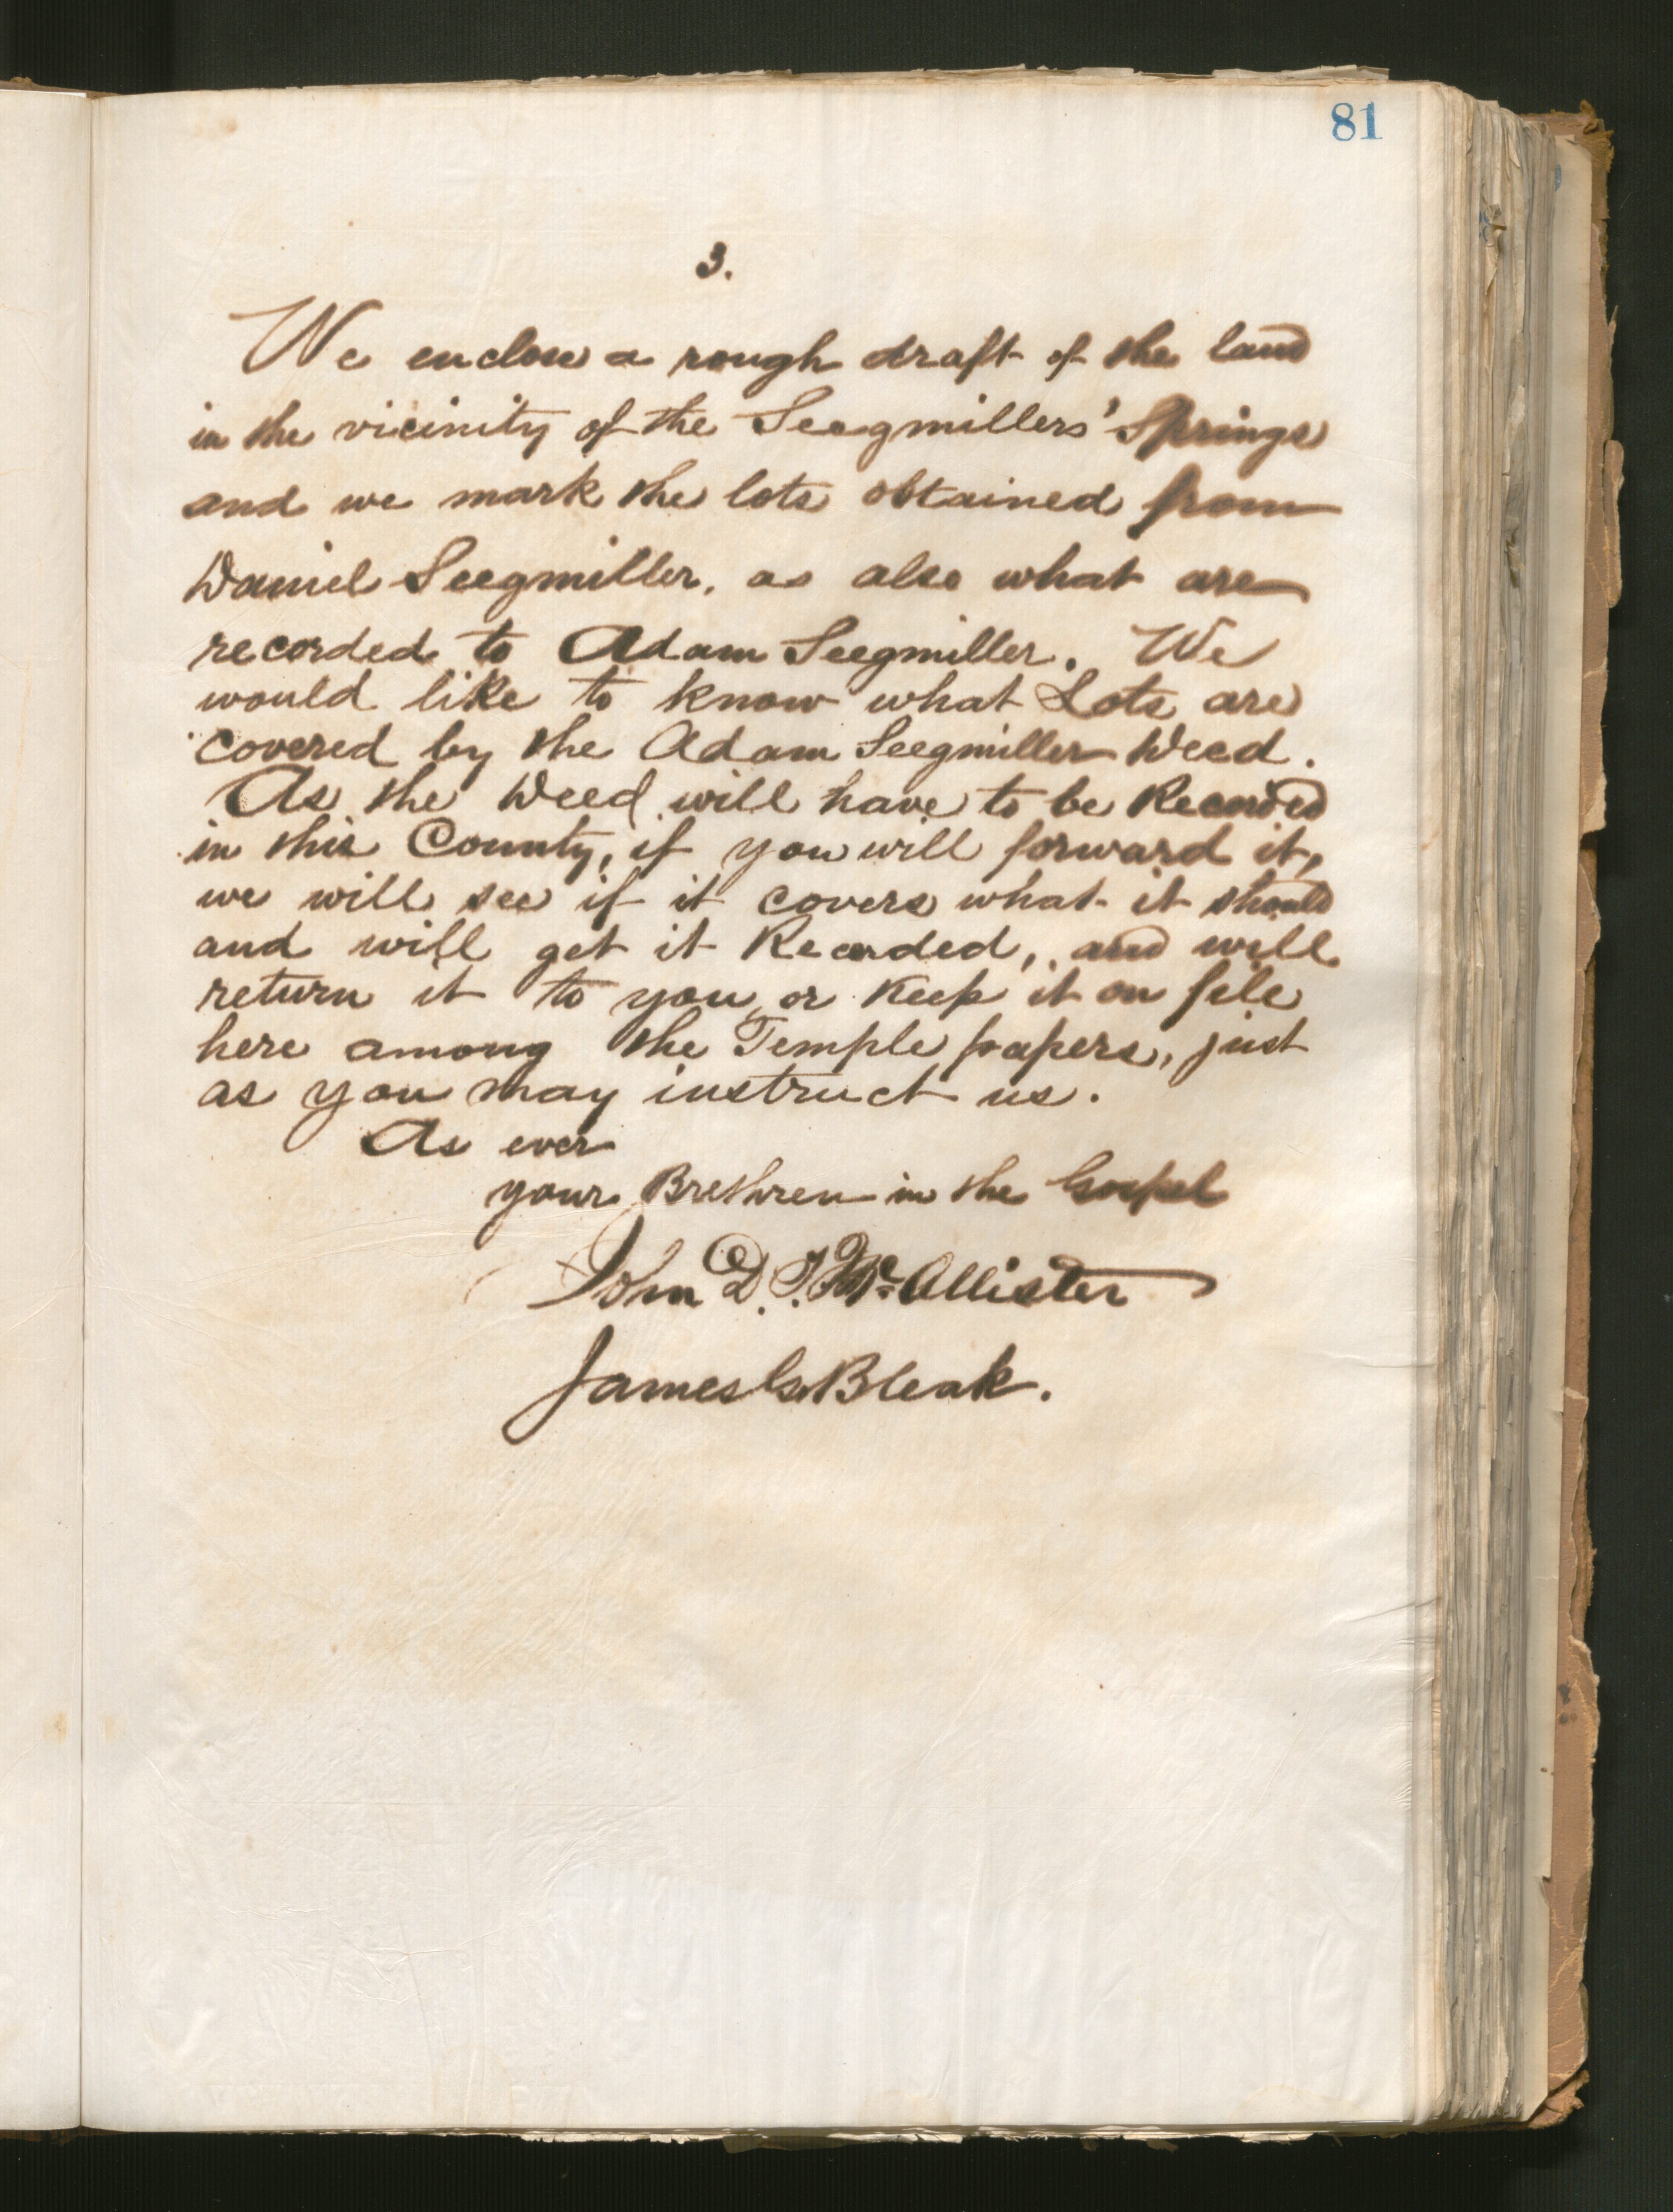 81
3.
We enclose a rough draft of the land
in the vicinity of the Seegmillers' Springs
and we mark the lots obtained from
Daniel Seegmiller, as also what are
recorded to Adam Seegmiller. We
would like to know what Lots are
covered by the Adam Seegmiller Deed.
As the Deed will have to be Recorded
in this County, if you will forward it,
we will see if it covers what it should
and will get it Recorded, and will
return it to you or Keep it on file
here among the Temple papers, just
as you may instruct us.
As ever
your Brethren in the Gospel
John D. T. McAllister
James G. Bleak.